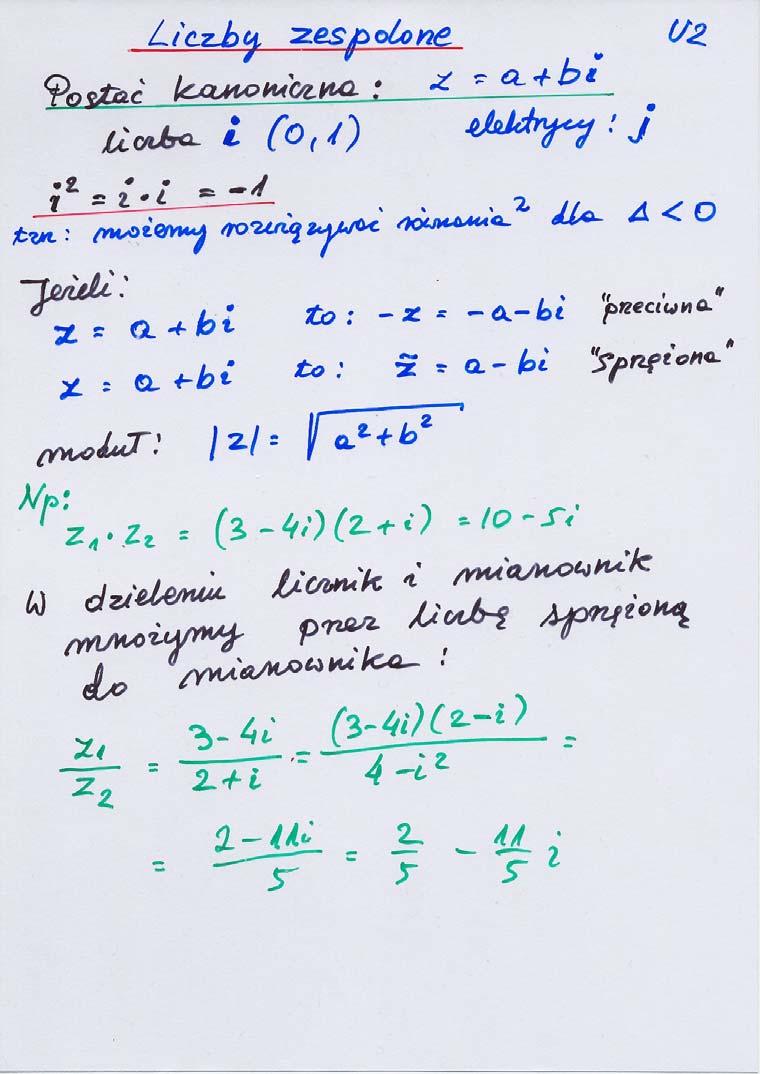 Liczby zespolone U2
Postać kanoniczna: z = a + bi
liczba i (0,1) elektrycy: j
i² = i·i = -1
tzn: możemy rozwiązywać równania² dla Δ < 0
Jeżeli:
z = a + bi to: -z = -a-bi "przeciwna"
z = a + bi to: z̃ = a - bi "sprzężona"
moduł: |z| = √(a²+b²)
Np:
z₁·z₂ = (3-4i)(2+i) = 10-5i
W dzieleniu licznik i mianownik
mnożymy przez liczbę sprzężoną
do mianownika:
z₁/z₂ = (3-4i)/(2+i) = (3-4i)(2-i)/(4-i²) =
= (2-11i)/5 = 2/5 - 11/5 i